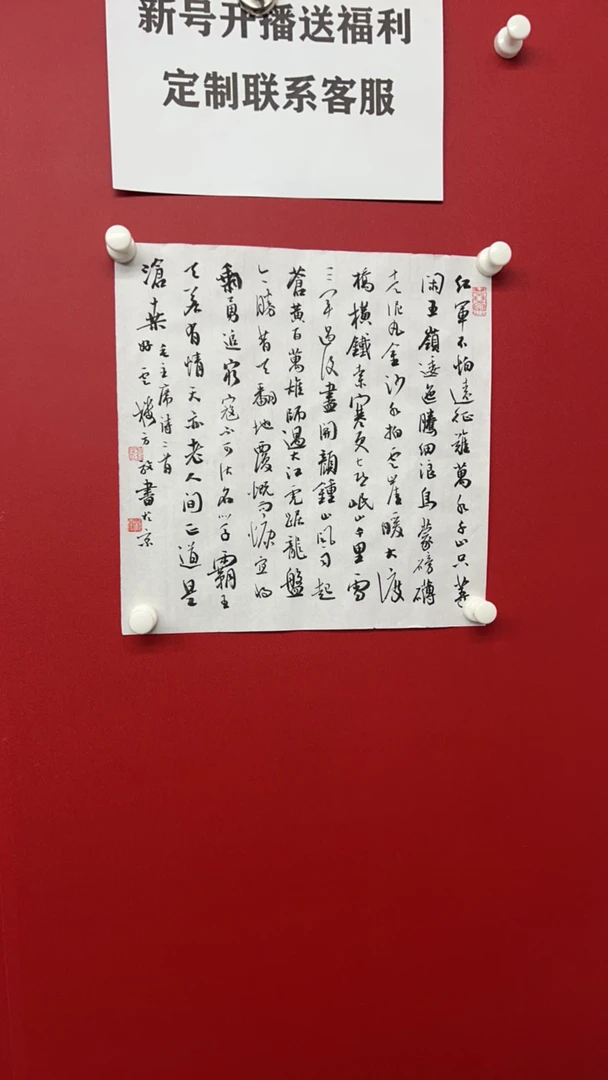 新号开播送福利
定制联系客服
紅軍不怕遠征難萬水千山只等
閑五嶺逶迤騰細浪烏蒙磅礴
走泥丸金沙水拍雲崖暖大渡
橋橫鐵索寒更喜岷山千里雪
三軍過後盡開顏鍾山風雨起
蒼黃百萬雄師過大江虎踞龍盤
今勝昔天翻地覆慨而慷宜將
剩勇追窮寇不可沽名學霸王
天若有情天亦老人間正道是
滄桑
毛主席詩二首
書於京